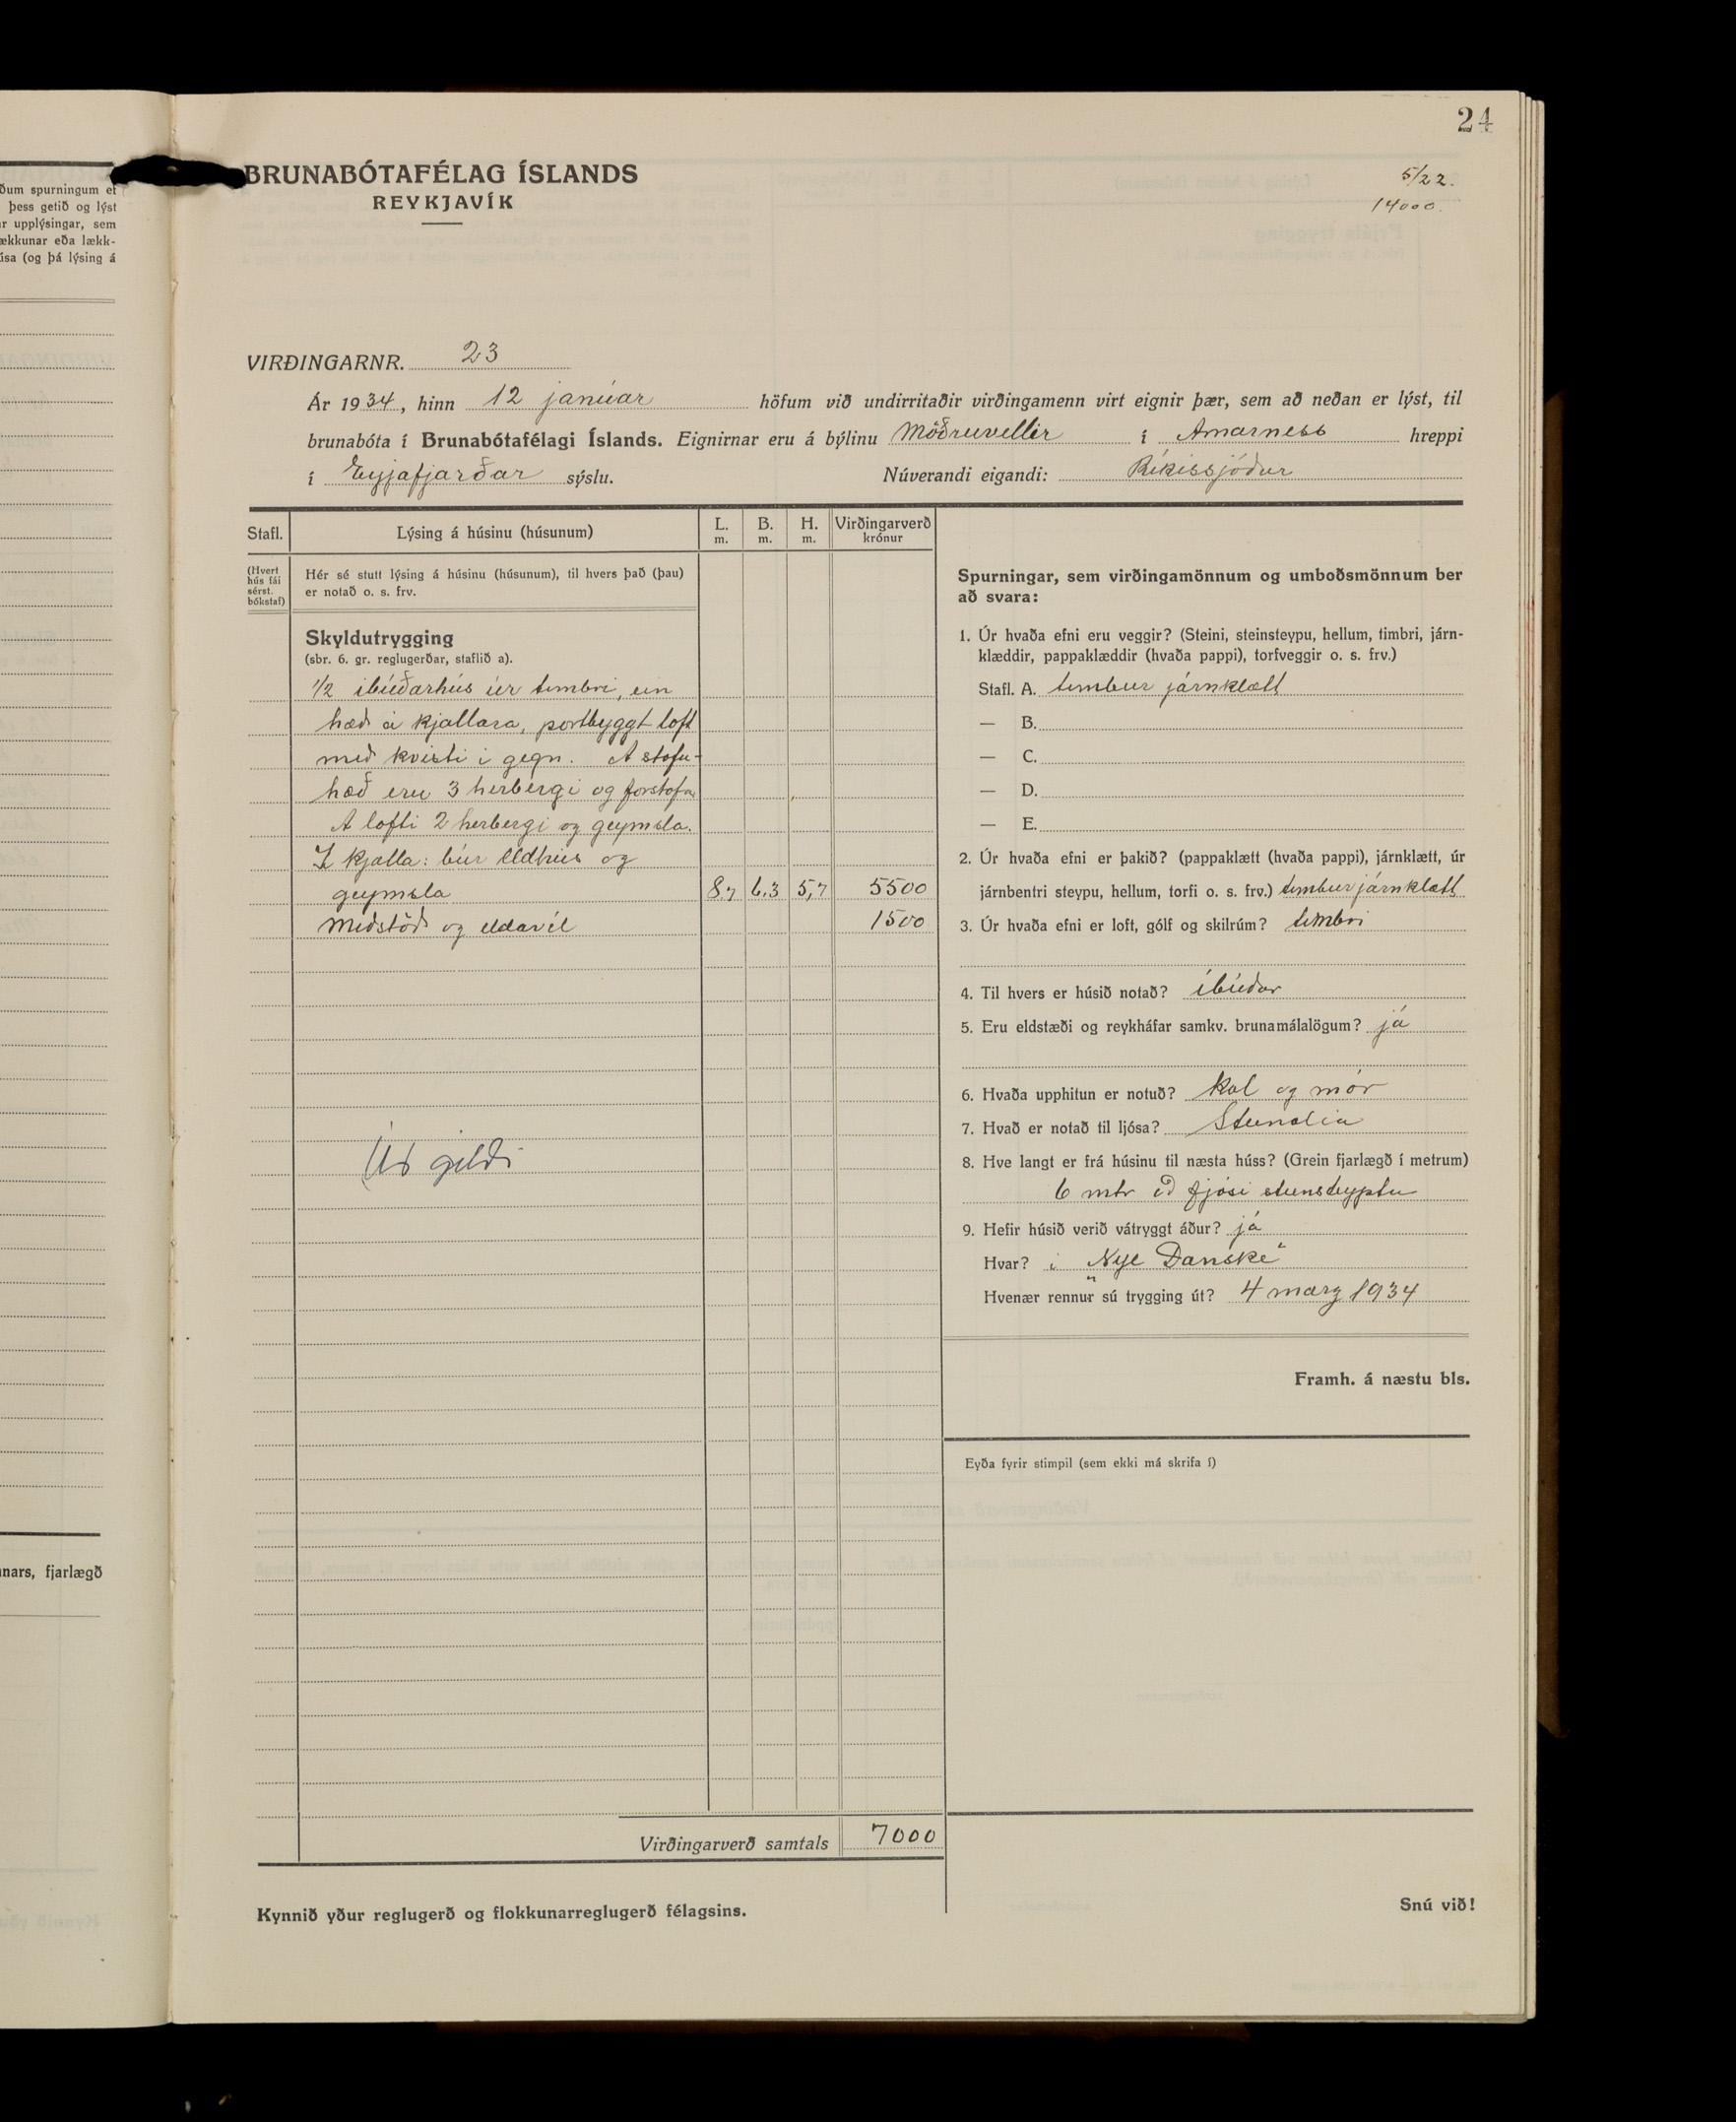 24
5/22.
14000.
ðum spurningum ef
þess getið og lýst
r upplýsingar, sem
ækkunar eða lækk-
úsa (og þá lýsing á
nars, fjarlægð
BRUNABÓTAFÉLAG ÍSLANDS
REYKJAVÍK
VIRÐINGARNR. 23
Ár 1934, hinn 12 janúar höfum við undirritaðir virðingamenn virt eignir þær, sem að neðan er lýst, til
brunabóta í Brunabótafélagi Íslands. Eignirnar eru á býlinu Möðruvellir í Arnarness hreppi
í Eyjafjarðar sýslu. Núverandi eigandi: Ríkissjóður
Stafl. Lýsing á húsinu (húsunum) L. m. B. m. H. m. Virðingarverð krónur
(Hvert hús fái sérst. bókstaf)
Hér sé stutt lýsing á húsinu (húsunum), til hvers það (þau)
er notað o. s. frv.
Skyldutrygging
(sbr. 6. gr. reglugerðar, staflið a).
1/2 íbúðarhús úr timbri, ein
hæð á kjallara, portbyggt loft
með kvisti í gegn. Á stofu-
hæð eru 3 herbergi og forstofa
Á lofti 2 herbergi og geymsla.
Í kjalla: búr Eldhús og
geymsla 8,7 6,3 5,7 5500
Miðstöð og eldavél 1500
Úr gildi
Virðingarverð samtals 7000
Kynnið yður reglugerð og flokkunarreglugerð félagsins.
Spurningar, sem virðingamönnum og umboðsmönnum ber
að svara:
1. Úr hvaða efni eru veggir? (Steini, steinsteypu, hellum, timbri, járn-
klæddir, pappaklæddir (hvaða pappi), torfveggir o. s. frv.)
Stafl. A. timbur járnklætt
— B.
— C.
— D.
— E.
2. Úr hvaða efni er þakið? (pappaklætt (hvaða pappi), járnklætt, úr
járnbentri steypu, hellum, torfi o. s. frv.) timbur járnklætt
3. Úr hvaða efni er loft, gólf og skilrúm? timbri
4. Til hvers er húsið notað? íbúðar
5. Eru eldstæði og reykháfar samkv. brunamálalögum? já
6. Hvaða upphitun er notuð? kol og mór
7. Hvað er notað til ljósa? Steinolia
8. Hve langt er frá húsinu til næsta húss? (Grein fjarlægð í metrum)
6 mtr að fjósi steinsteyptu
9. Hefir húsið verið vátryggt áður? já
Hvar? í „Nye Danske"
Hvenær rennur sú trygging út? 4 marz 1934
Framh. á næstu bls.
Eyða fyrir stimpil (sem ekki má skrifa í)
Snú við!